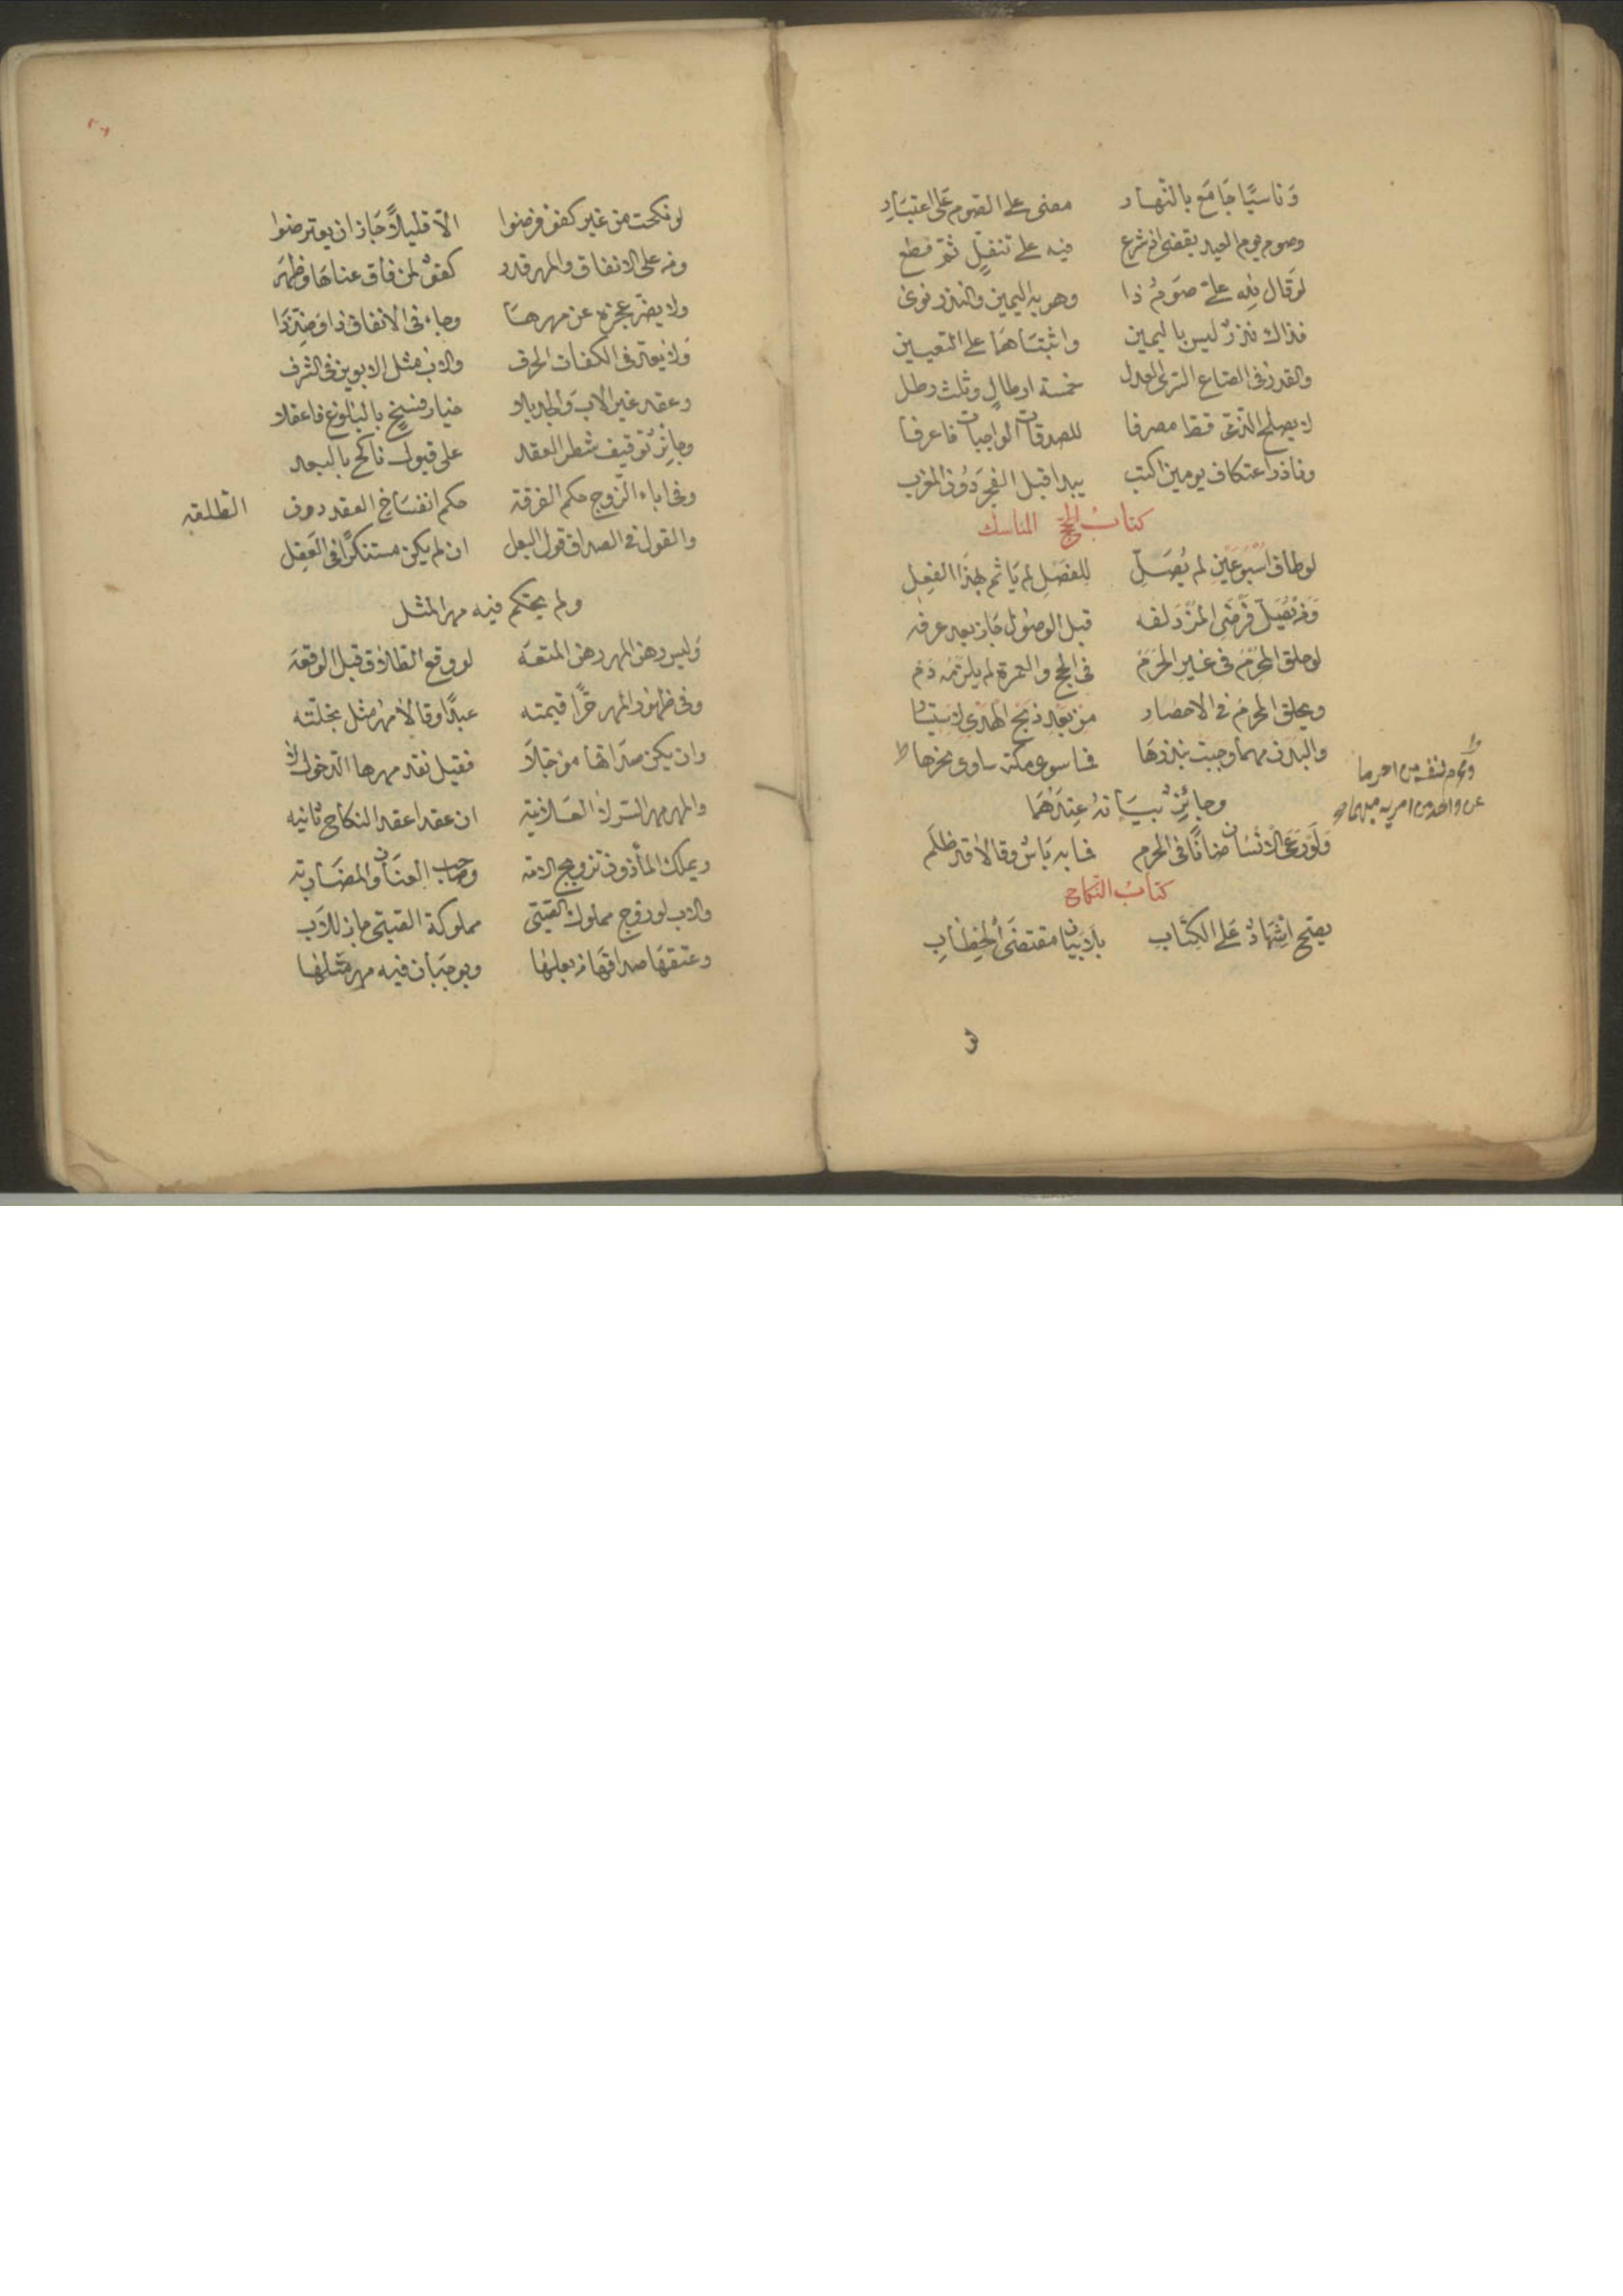 وَناسيًا جَامَع بالنّهار مضى على الصّوم على اعتبَارِ
وصوم يوم العيد يقضى اذ شرع فيه على تنفّلٍ ثمّ قطع
لوقال لله علىّ صَومُ ذا وهو به اليمين والنذر نوى
فذاك نذرٌ ليس باليمين واثبتَاهمَا على التعيين
والقدر فى الصّاع خمسة ارطالٍ وثلث رطل
لا يصلح الذّمّى قط مصرفا للصدقات الواجبات فاعرفا
وناذر اعتكاف يومين يبدا قبل الفجر دُون المغرب
كتابُ الحج المناسك
لوطاف اسْبُوعَين لم يُصَلّ للفصَلِ لم يَاثم بهذَا الفعِل
فَرضَى المُزدَلفه قبل الوصُول جَاز بعد عرفه
لوحلق المحرَم فى غير الحرَم فى الحج والعمرة لم يلزمه دَم
ويحلق المحرم فى الاحصار من بعد ذبح الهدى
والبدن مهما وجبت بنذرهَا فما سوى مكة ساوى نحرها
وجائزٌ بيَانهُ عنِدَهُمَا
وَلَوْ رَعَى الانسَان ضانًا فى الحرم فما به بَاسٌ وقالا قد ظلَم
كتابُ النّكاح
يصح اشِهَادٌ عَلى الكِتَابِ بلا بيَان مقتضَى الخِطَابِ
لو نكحت من غير كفؤ فرضوا الّا قليلاً جَاز ان يعترضوا
على الانفاق والمهر قدر كفؤٌ لمن فاق غناهَا وظهَر
ولا يضرّ عجزه عن مهرهَا وجاء فى الانفاق ذا وَضِدُّذَا
وَلا يعتد فى الكفات الحرف والاب مثل الابوين فى الشرف
وعقد غير الاب وَالجد بلا خيار فسخٍ بالبلوغ فاعقلا
وجائزٌ توقيف شطر العقد على قبول ناكح بالبعد
وفى اباء الزّوج حكم الفرقة حكم انفسَاخ العقد دون الطلقه
والقول فى الصداق قول البعل ان لم يكن مستنكرًا فى العَقِل
ولم يحكم فيه مهر المثل
وَليس رهن المهر رهن المتعَه لو وقع الطلاق قبل الوقعَه
وفى ظهور المهر حرًّا قيمته عبدًا وقالا مهرُ مثل نحلته
وان يكن صدَاقها مؤجّلاَ فقيل نقد مهرها الدخول لا
والمهر مهر السّر لا العَلانيَة ان عقدا عقد النكاح ثانيه
ويملك المأذون تزويج الامه وصَاحب العنَان والمضَاربَه
والاب لو زوج مملوك الصّبىّ مملوكة الصّبىّ جاز للاَب
وعتقهَا صداقهَا بعلها ويوجبَان فيه مهر مثلها